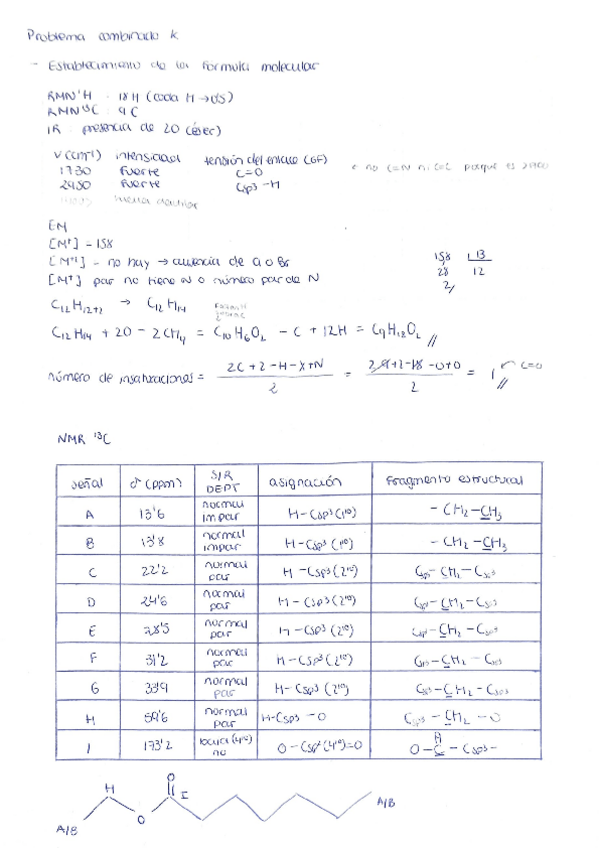 Problema combinado K
- Establecimiento de la formula molecular
RMN ¹H : 18H (cada H → ds)
RMN ¹³C : 9C
IR : presencia de 2O (éser)
ν(cm⁻¹) intensidad tensión del enlace (GF)
1730 fuerte C=O
2950 fuerte Csp³-H
EM
[M⁺] = 158
[M⁺²] - no hay → ausencia de Cl o Br
[M⁺] par no tiene N o número par de N
158 | 13
28 12
2
C₁₂H₁₂₊₂ → C₁₂H₁₄
C₁₂H₁₄ + 2O - 2CH₄ = C₁₀H₆O₂ - C + 12H = C₉H₁₂O₂ //
número de insaturaciones = 2C+2-H-X+N / 2 = 2·9+2-18-0+0 / 2 = 1 // C=O
NMR ¹³C
señal δ (ppm) S/R DEPT asignación Fragmento estructural
A 13'6 normal impar H-Csp³ (1º) -CH₂-CH₃
B 13'8 normal impar H-Csp³ (1º) -CH₂-CH₃
C 22'2 normal par H-Csp³ (2º) Csp³-CH₂-Csp³
D 24'6 normal par H-Csp³ (2º) Csp³-CH₂-Csp³
E 28'5 normal par H-Csp³ (2º) Csp³-CH₂-Csp³
F 31'2 normal par H-Csp³ (2º) Csp³-CH₂-Csp³
G 33'9 normal par H-Csp³ (2º) Csp³-CH₂-Csp³
H 59'6 normal par H-Csp³-O Csp³-CH₂-O
I 173'2 (4º) no O-Csp²(4º)=O O-C-Csp³-
H O I A/B
A/B O